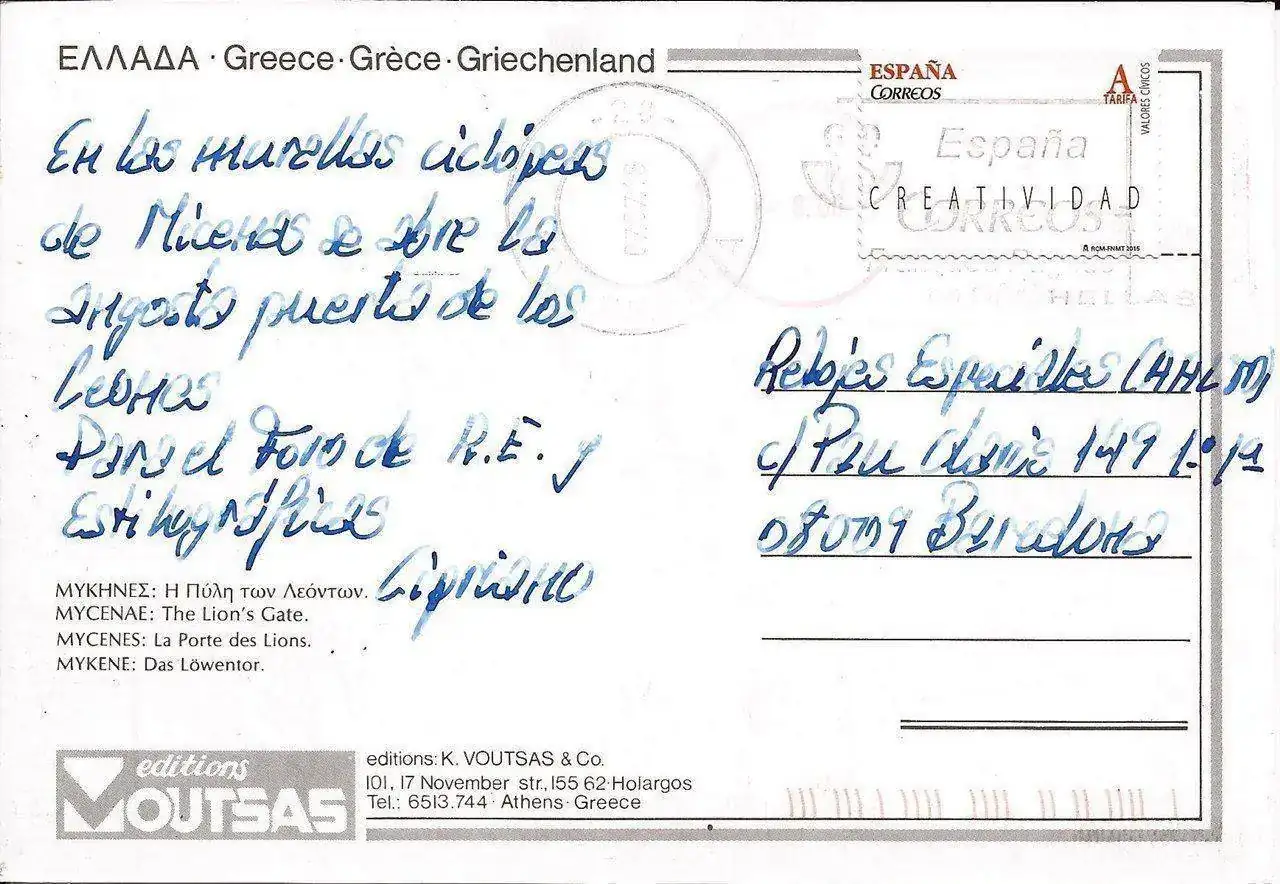 ΕΛΛΑΔΑ · Greece · Grèce · Griechenland
ESPAÑA
CORREOS
A
TARIFA
VALORES CÍVICOS
España
CREATIVIDAD
CORREOS
RCM-FNMT 2015
HELLAS
En las murallas ciclópeas
de Micenas se abre la
angosta puerta de los
Leones
Para el Foro de R.E. y
Estilográficas
Cipriano
Relojes Especiales (AHLM)
c/ Pau Claris 149 1º 1ª
08009 Barcelona
ΜΥΚΗΝΕΣ: Η Πύλη των Λεόντων.
MYCENAE: The Lion's Gate.
MYCENES: La Porte des Lions.
MYKENE: Das Löwentor.
editions
VOUTSAS
editions: K. VOUTSAS & Co.
101, 17 November str., 155 62 · Holargos
Tel.: 6513.744 · Athens · Greece